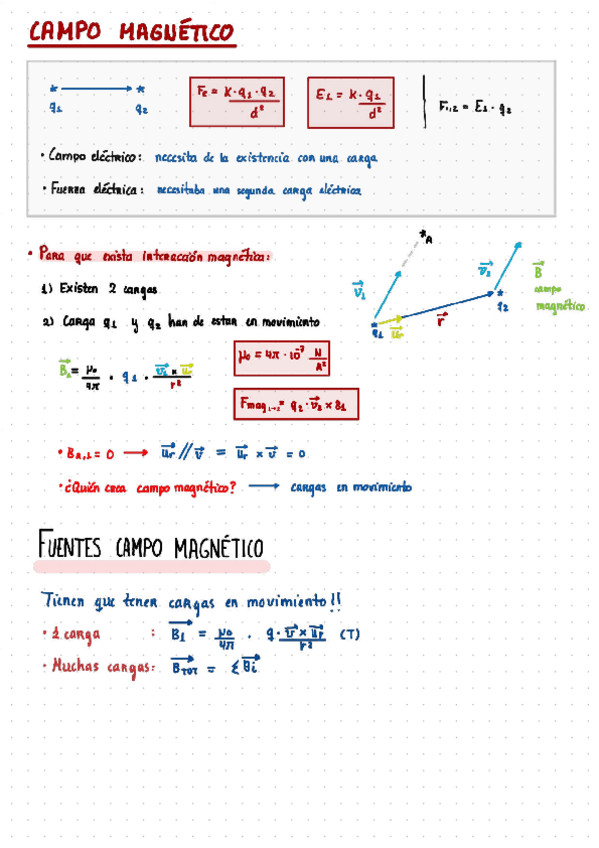 CAMPO MAGNÉTICO
q1 q2
Fe = K·q1·q2 / d²
E1 = K·q1 / d²
F1,2 = E1 · q2
· Campo eléctrico: necesita de la existencia con una carga
· Fuerza eléctrica: necesitaba una segunda carga eléctrica
· Para que exista interacción magnética:
1) Existen 2 cargas
2) Carga q1 y q2 han de estan en movimiento
A
v1
v2
B campo magnético
q1 ur r q2
B1 = μ0 / 4π · q1 · v1 x ur / r²
μ0 = 4π · 10⁻⁷ N / A²
Fmag 1→2 = q2 · v2 x B1
· BA,1 = 0 → ur // v = ur x v = 0
· ¿Quién crea campo magnético? → cargas en movimiento
FUENTES CAMPO MAGNÉTICO
Tienen que tener cargas en movimiento!!
· 1 carga : B1 = μ0 / 4π · q · v x ur / r² (T)
· Muchas cargas: BTOT = Σ Bi